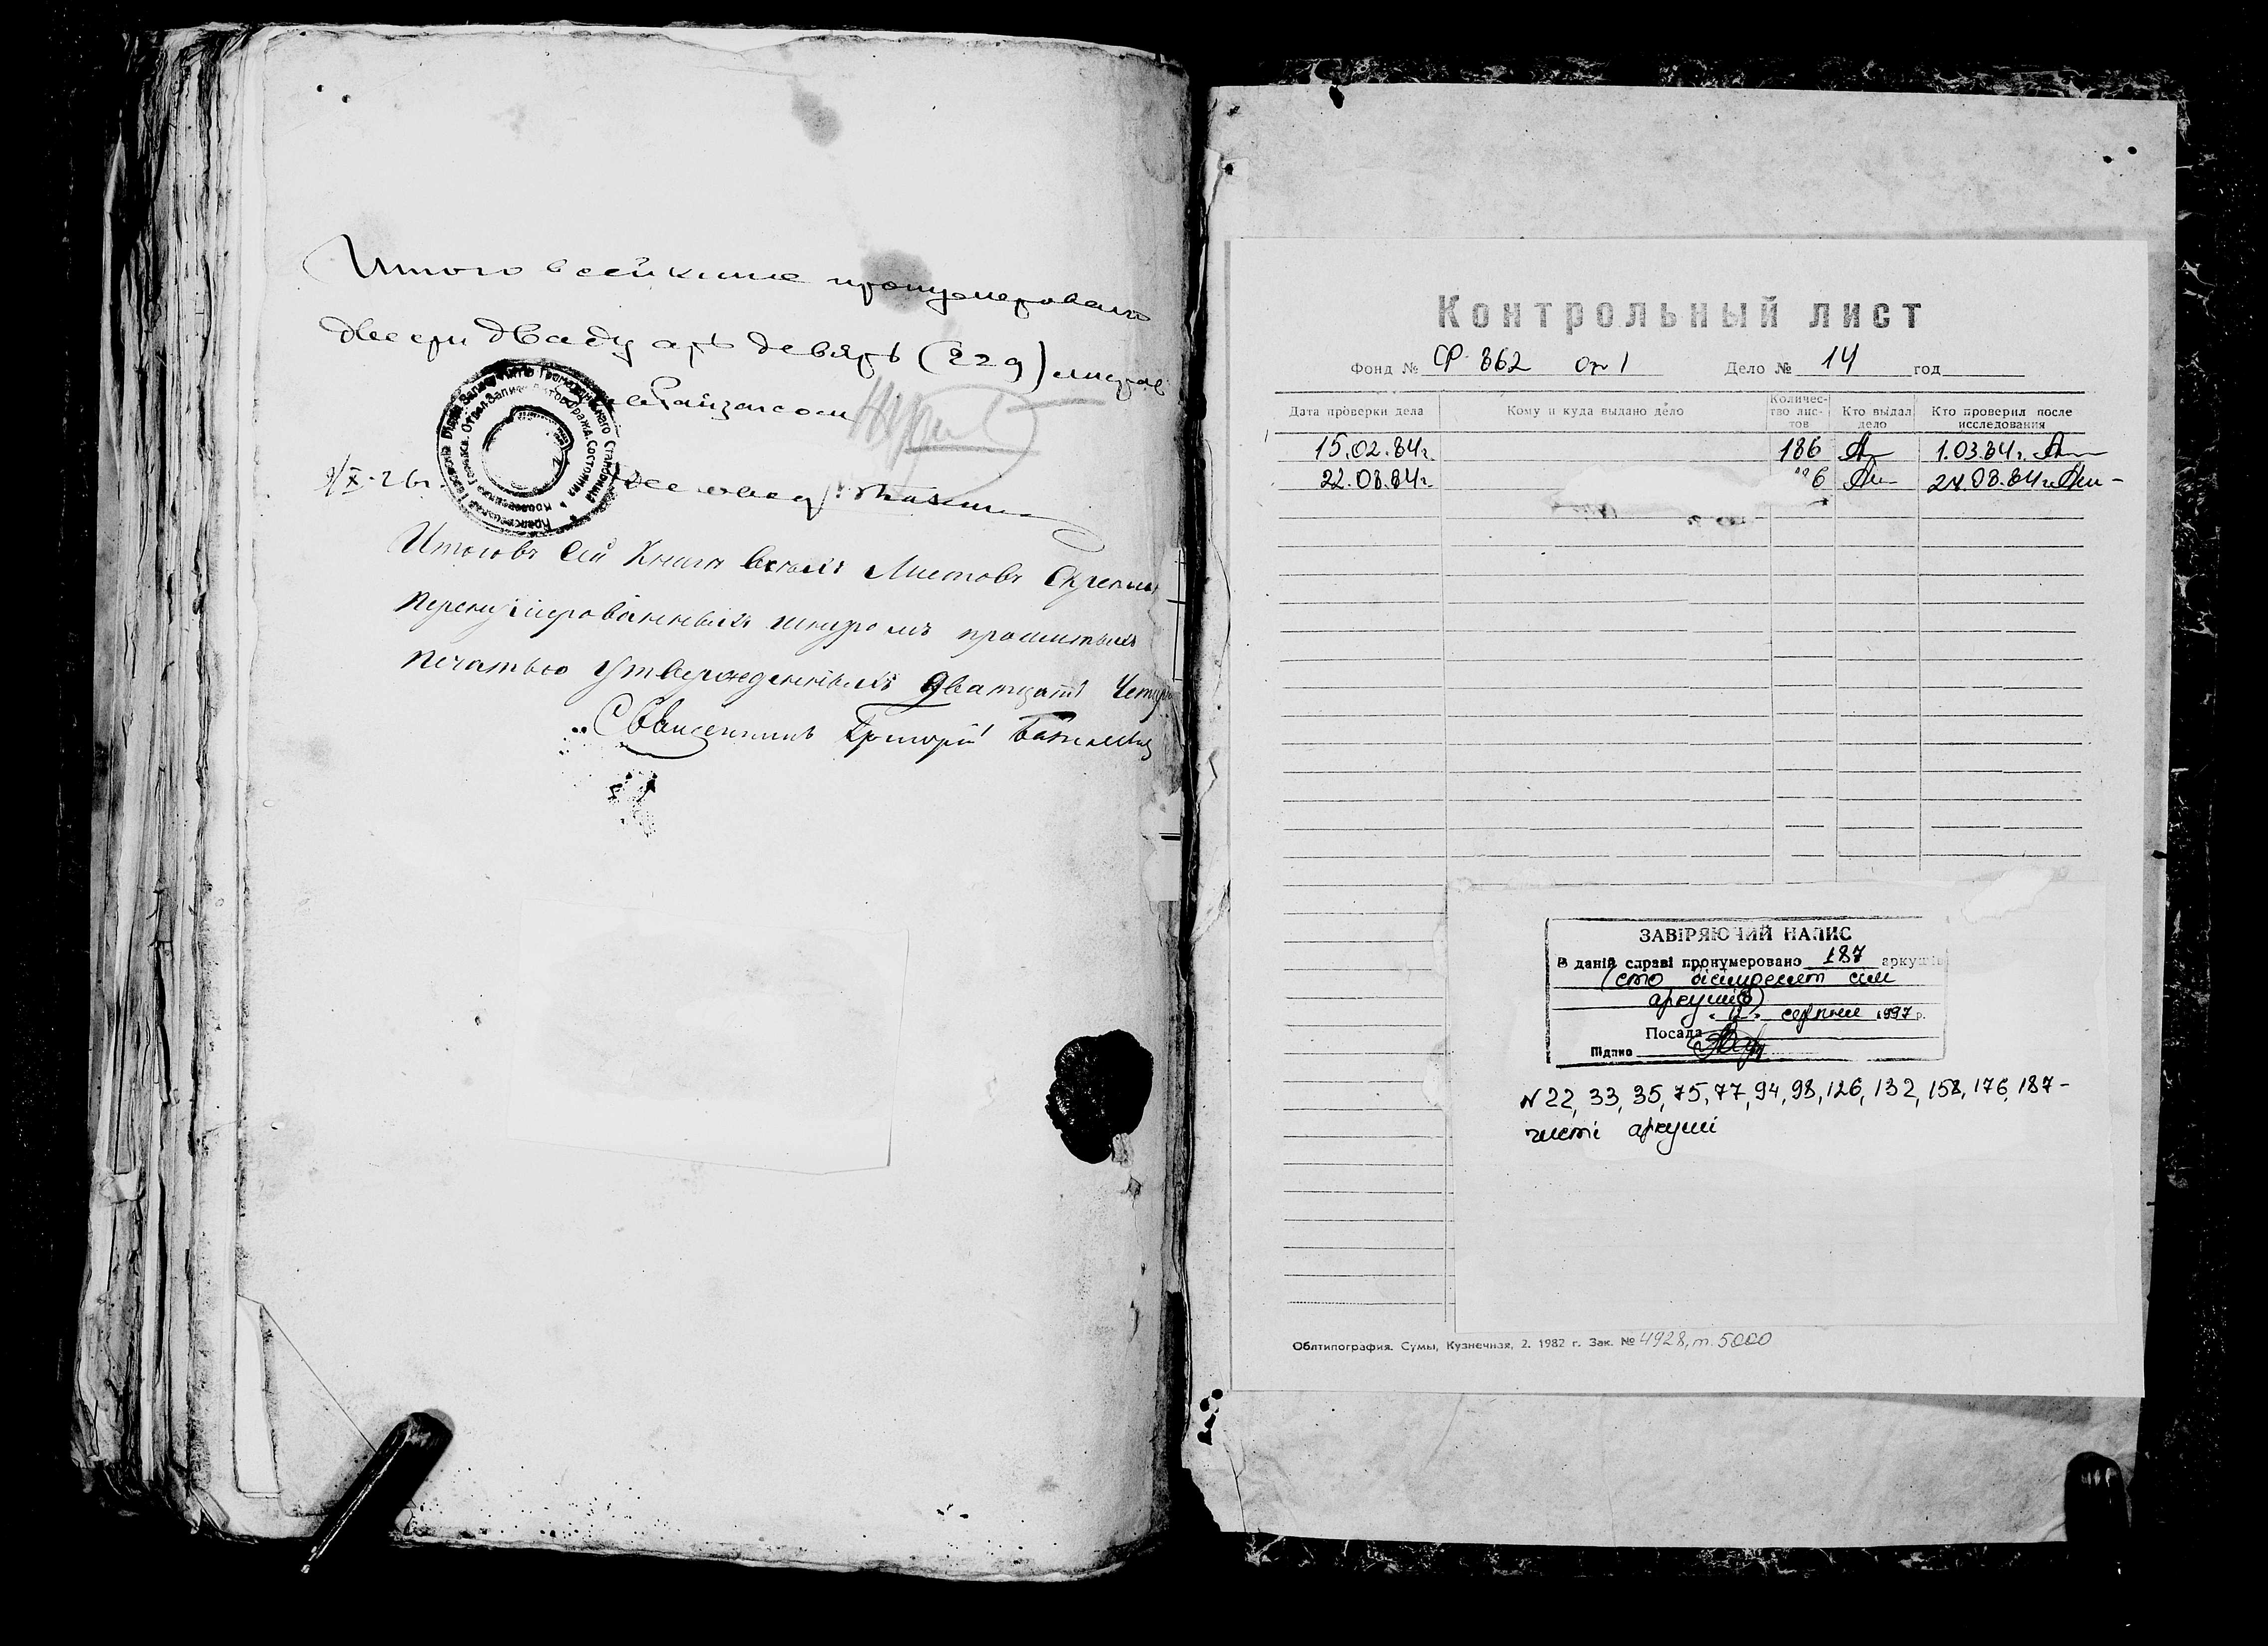 Итого в сей книге пронумеровано
двести двадцать девять (229) листов
9/X-26г.
Итого въ сей Книги всехъ Листовъ
перенумерованныхъ шнуромъ прошитыхъ
печатью утвержденныхъ двадцать
Священникъ Григорій
Контрольный лист
Фонд № СР-862 оп 1 Дело № 14 год
Дата проверки дела Кому и куда выдано дело Количес-тво лис-тов Кто выдал дело Кто проверил после исследования
15.02.84г. 186 1.03.84г.
22.08.84г. 6 24.08.84г.
ЗАВІРЯЮЧИЙ НАПИС
В даній справі пронумеровано 187 аркушів
(сто вісімдесят сім
аркушів)
"12" серпня 1997 р.
Посада
Підпис
N 22, 33, 35, 75, 77, 94, 98, 126, 132, 158, 176, 187 -
чисті аркуші
Облтипография. Сумы, Кузнечная, 2. 1982 г. Зак. № 4928, т. 5000